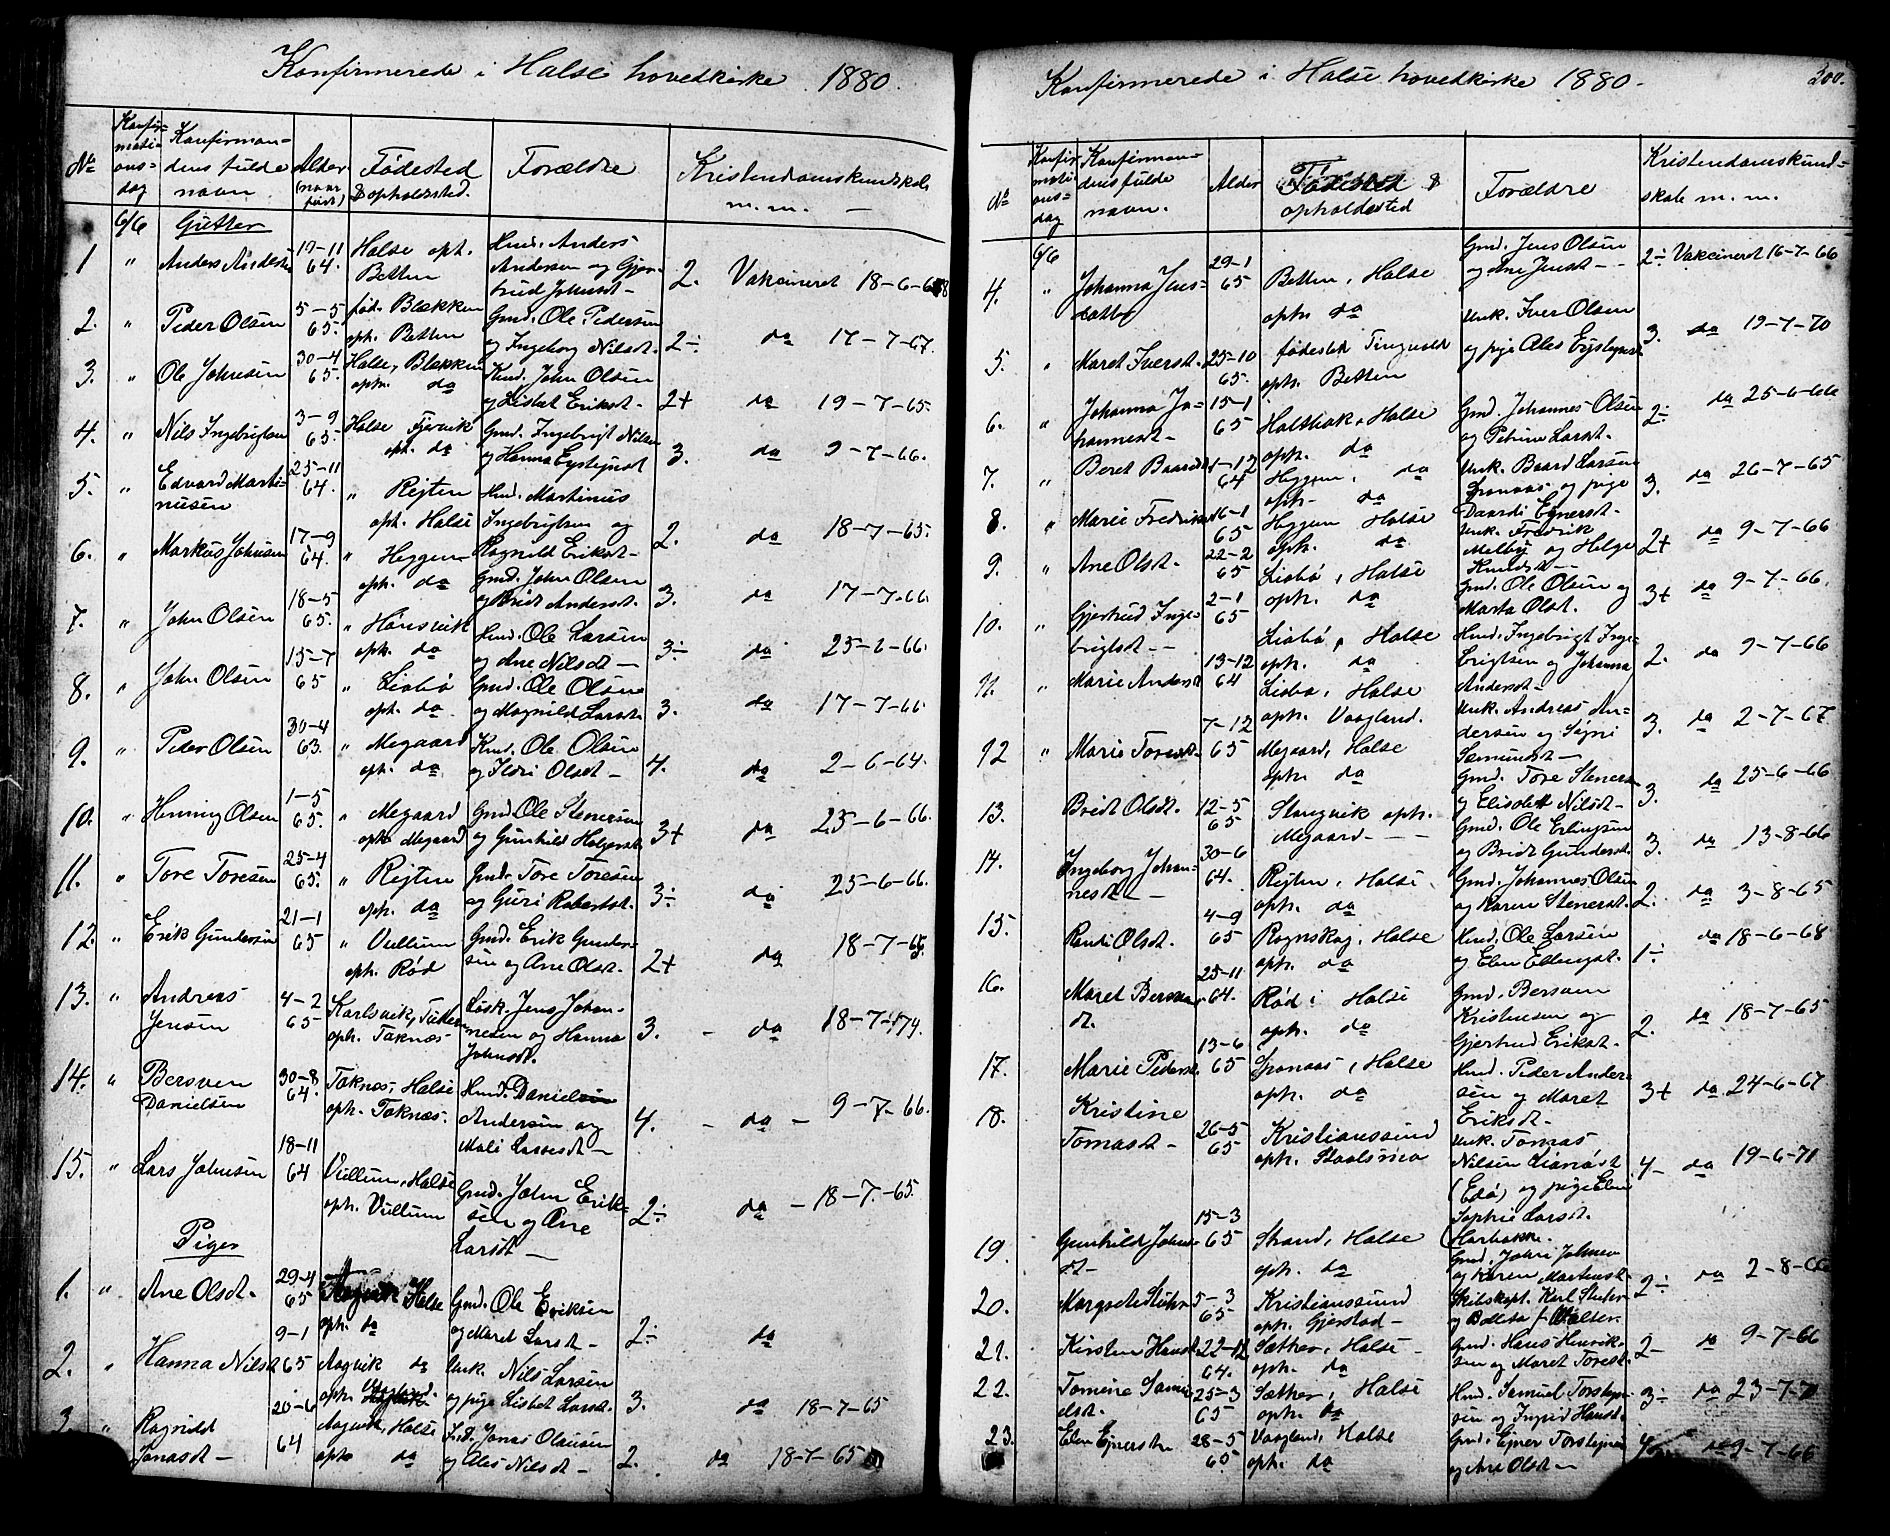 Konfirmerede i Halse hovedkirke 1880.
No
Konfirmationsdag
Konfirmandens fulde navn
Alder (naar født)
Fødested & opholdssted.
Forældre
Kristendomskundskab m. m. —
6/6 Gutter
1 " Anders Anders 19-11 64. Halse oph. Betten Hmd. Anders Andersen og Gjertrud Johnsdt - 2. Vakcineret 18-6-68
2. " Peder Olsen 5-5 65. fød. Blekken oph. Betten Gmd. Ole Pedersen og Ingeborg Nilsdt. 2÷ da 17-7-67.
3. " Ole Johnsen 30-4 65. Halse, Blekken oph. da Kmd. John Olsen og Lisbet Eriksdt - 2+ da 19-7-65.
4. " Nils Ingebrigtsen 3-9 65. Halse Fjervik oph. da Gmd. Ingebrigt Nilsen og Hanna Eysteinsdt 3. da 9-7-66.
5. " Edvard Martinusen 25-11 64. " Rejten oph. Halse Hmd. Martinus Ingebrigtsen og Ragnild Eriksdt - 2. da 18-7-65.
6. " Markus Johnsen 17-9 64. " Heggem oph. da Gmd. John Olsen og Brit Andersdt. 3. da 17-7-66.
7. " John Olsen 18-5 65. " Hønsvik oph. da Hmd. Ole Larsen og Ane Nilsdt — 3÷ da 25-6-66.
8. " John Olsen 15-7 65 " Liabø oph. da Gmd. Ole Olsen og Magnild Larsdt. 3. da 17-7-66
9. " Peder Olsen 30-4 63. " Megaard oph. da Kmd. Ole Olsen og Ildri Olsdt — 4. da 2-6-64.
10. " Henning Olsen 1-5 65. " Megaard oph. Megaard Gmd. Ole Stenersen og Gunhild Holgersdt 3+ da 23-6-66.
11. " Tore Toresen 25-4 65. " Rejten oph. da Gmd. Tore Toresen og Guri Robertsdt. 3÷ da 25-6-66.
12. " Erik Gundersen 21-1 65 " Vullum oph. Rød Gmd. Erik Gundersen og Ane Olsdt. 2+ da 18-7-65.
13. " Andreas Jensen 4-2 65 Karlsvik, oph. Taknæs Løsk. Jens Johannesen og Hanna Johnsdt. 3. - da 18-7-79.
14. " Bersven Danielsen 30-8 64. Taknæs, Halse oph. Taknæs. Hmd. Daniel Andersen og Mali Larsdt — 4. - da - 9-7-66.
15. " Lars Johnsen 18-11 64 Vullum, Halse oph. Vullum Gmd. John Eriksen og Ane Larsdt — 2÷ da - 18-7-65.
Piger
1. " Ane Olsdt. 29-4 65 Halse oph. da Gmd. Ole Eriksen og Maret Larsdt — 2÷ da
2. " Hanna Nilsdt 9-1 65 Aagvik da oph. Unk. Nils Larsen og pige Lisbet Larsdt. 3. da 18-7-65
3. " Ragnild Jonasdt — 20-6 64 Aagvik, Halse oph. da Jonas Olausen og Ales Nilsdt — 2. da 18-7-65
Konfirmerede i Halse hovedkirke 1880. 200.
No
Konfirmationsdag
Konfirmandens fulde navn.
Alder
Fødested & opholdssted
Forældre
Kristendomskundskab m. m.
6/6
4. " Johanna Jensdatter 29-1 65 Betten, Halse oph. da Gmd. Jens Olsen og Ane Jensdt - - 2÷ Vakcineret 16-7-66
5. " Maret Iversdt. 25-10 65. fødested Tingvold oph. Betten Unk. Iver Olsen og pige Ales Eysteinsdt 3. da 19-7-70
6. " Johanna Johannesdt - 15-1 65 Holtbak, Halse oph. da Gmd. Johannes Olsen og Petrine Larsdt. 2÷ da 25-6-66
7. " Beret Baardsdt 1-12 64 Heggem, da oph. da Unk. Baard Larsen Granaas og pige Daardi Ejnersdt. 3. da 26-7-65
8. " Marie Fredriksdt 16-1 65 Heggem Halse oph. da Unk. Fredrik Melby og Helge Knudsdt - - 2+ da 9-7-66
9. " Ane Olsdt. 22-2 65 Liabø, Halse oph. da Gmd. Ole Olsen og Marta Olsdt. 3+ da 9-7-66.
10. " Gjertrud Ingebrigtsdt - - 2-1 65 Liabø, Halse oph. da Hmd. Ingebrigt Ingebrigtsen og Johanna Andersdt - 2. da 9-7-66
11. " Marie Andersdt 13-12 64 Liabø, Halse oph. Vaagland. Unk. Andreas Andersen og Signi Samundsdt — 3. da 2-7-67
12 " Marie Toresdt. 7-12 65 Megaard, Halse oph. da Gmd. Tore Stenersen og Elisabeth Nilsdt - 3. da 25-6-66
13. Brit Olsdt. 12-5 65 Stangvik oph. Megaard - - Gmd. Ole Erlingsen og Brit Gundersdt. 3. da 13-8-66
14. Ingeborg Johannesdt - 30-6 64. Rejten, Halse oph. da Gmd. Johannes Olsen og Karen Stenersdt. 2. da 3-8-65
15. Randi Olsdt. 4-9 65 Rognskog, Halse oph. da Hmd. Ole Larsen og Elen Ellingsdt. 1÷ da 18-6-68
16. Maret Bersvendt. 25-11 64. Rød i Halse oph. da Gmd. Bersven Kristensen og Gjertrud Eriksdt. 2. da 18-7-65
17. Marie Pedersdt 13-6 65 Granaas, Halse oph. da Hmd. Peder Andersen og Maret Eriksdt - 3+ da 24-6-67
18. Kristine Tomasdt - 26-5 65 Kristianssund oph. Staalsmo Unk. Tomas Nilsen (Edø) og pige Elen Sophie Larsdt. 4- da 19-6-71
19. Gunhild Johnsdt - 15-3 65 Strand, Halse oph. da Gmd. John Johnsen og Karen Martensdt. 2÷ da 2-8-66
20. Margrete 5-3 65 Kristianssund oph. Gjerstad - Skibskapt. Karl
21. Kirsten Hansdt 22-12 64. Sæther, Halse - oph. da Gmd. Hans Henriksen og Maret Toresdt. 2- da 9-7-66
22. Tomine Samuelsdt. 25-3 65 Sæther, Halse oph. da Hmd. Samuel Torstensen og Ingrid Hansdt. 3÷ da 23-7-71
23. Elen Ejnersdtr 28-5 65 Vaagland, Halse oph. da Gmd. Ejner Torstensen og Ane Olsdt - da 9-7-66